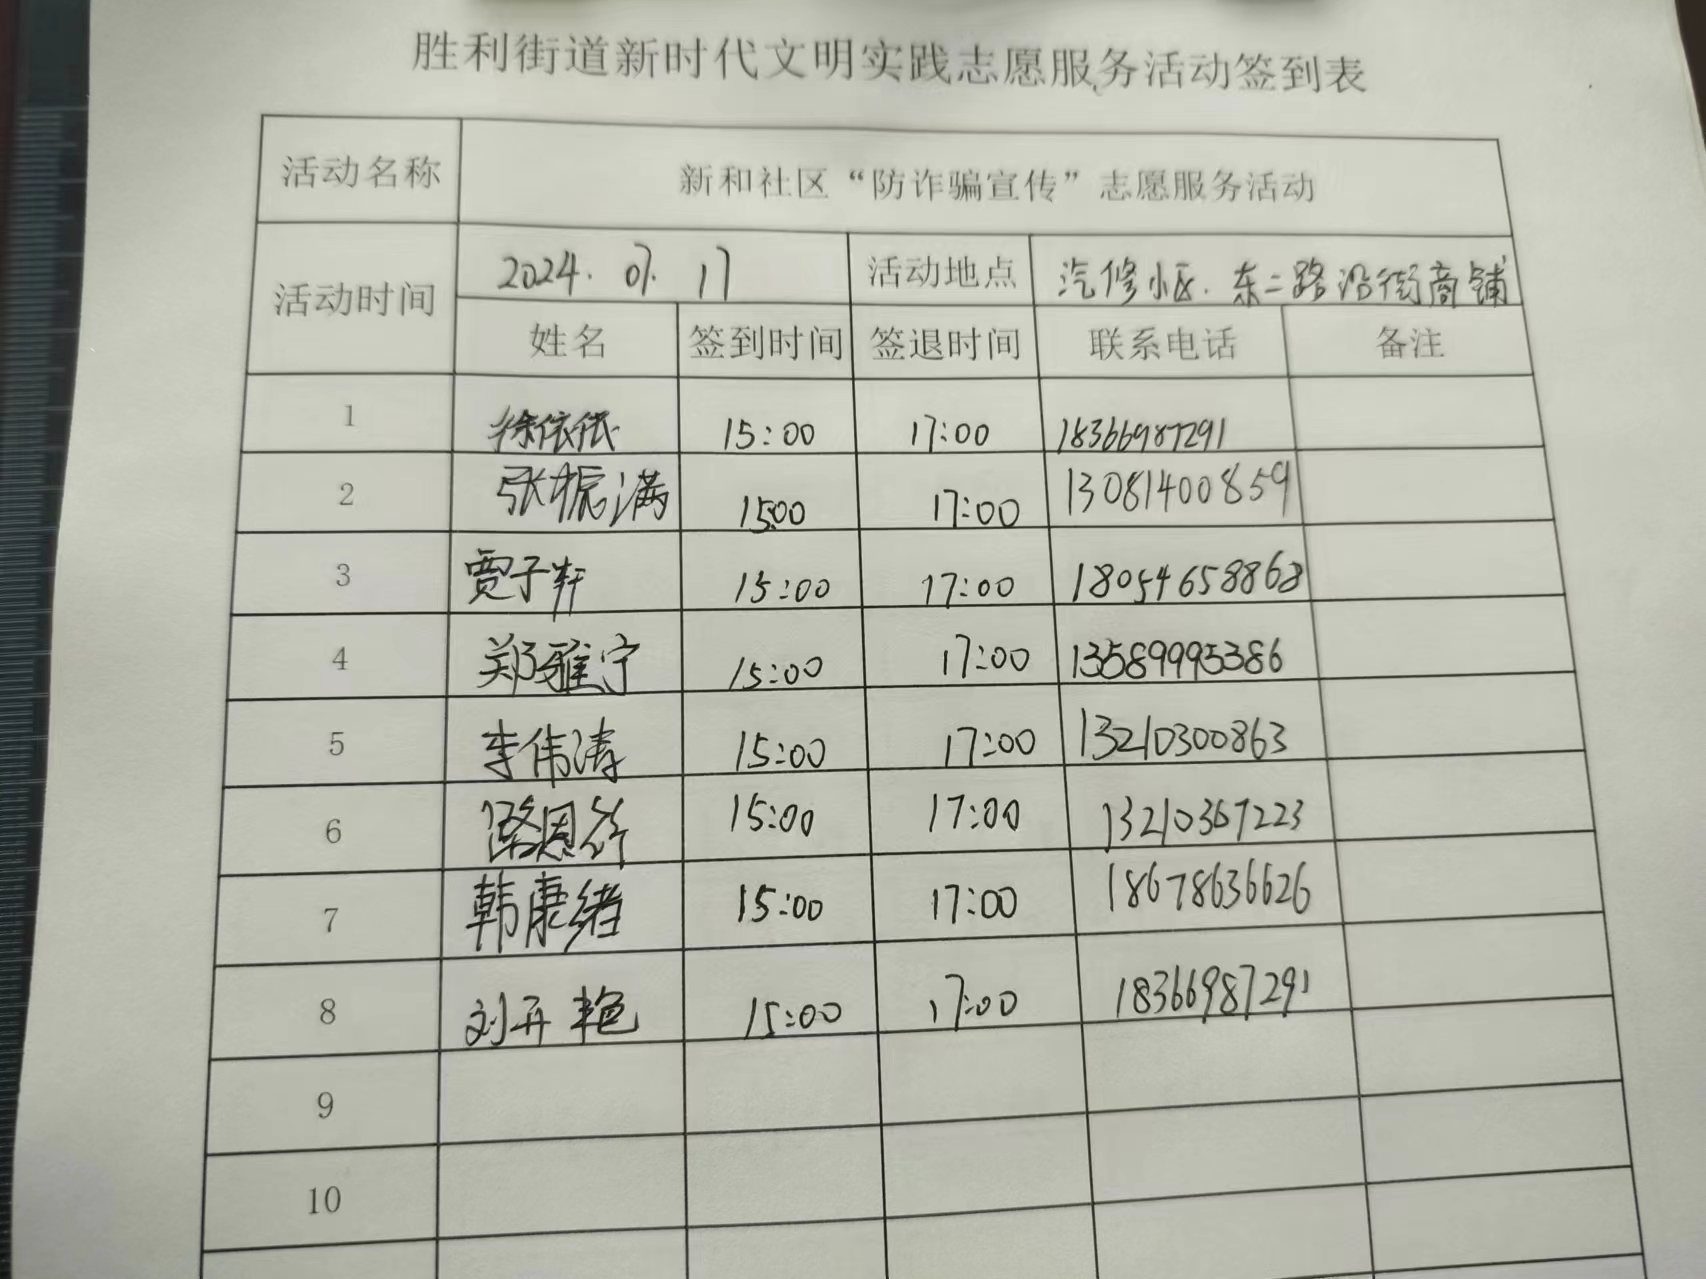 胜利街道新时代文明实践志愿服务活动签到表
活动名称 新和社区“防诈骗宣传”志愿服务活动
活动时间 2024.07.17 活动地点 汽修小区.东二路沿街商铺
姓名 签到时间 签退时间 联系电话 备注
1 徐依依 15:00 17:00 18366987291
2 张振满 15:00 17:00 13081400859
3 贾子轩 15:00 17:00 18054658868
4 郑雅宁 15:00 17:00 13589995386
5 李伟涛 15:00 17:00 13210300863
6 15:00 17:00 13210367223
7 韩康绪 15:00 17:00 18678636626
8 刘开艳 15:00 17:00 18366987291
9
10